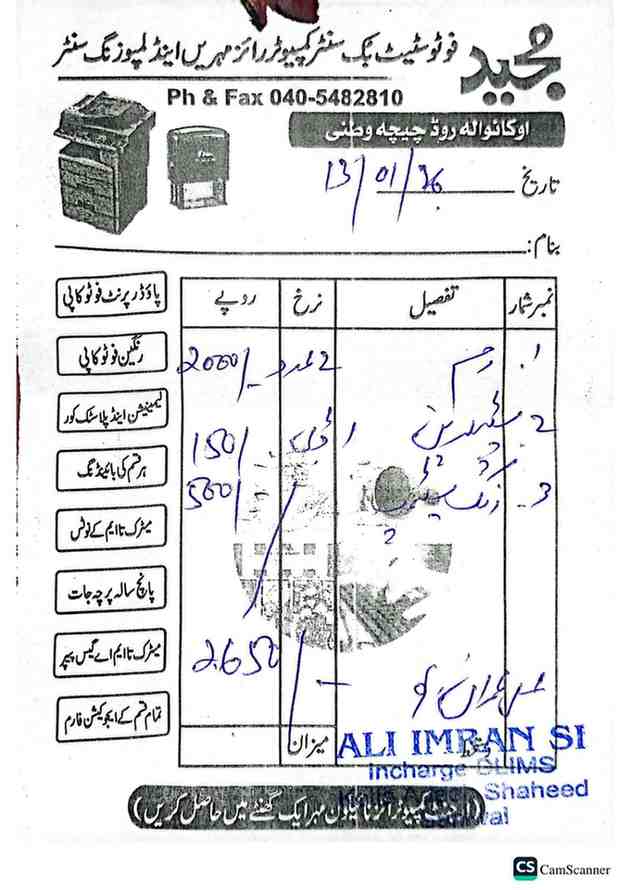 مجید
فوٹوسٹیٹ، بک سنٹر کمپیوٹررائز مہریں اینڈ کمپوزنگ سنٹر
Ph & Fax 040-5482810
اوکانوالہ روڈ چیچہ وطنی
تاریخ 13/01/36
بنام:
نمبر شمار تفصیل نرخ روپے
1. رجسٹر 2 عدد 2000/-
2. 1 150/
3. 500/
2650/-
میزان
پاؤڈر پرنٹ فوٹو کاپی
رنگین فوٹو کاپی
لیمینیشن اینڈ پلاسٹک کور
ہر قسم کی بائینڈنگ
میٹرک تا ایم اے نوٹس
پانچ سالہ پرچہ جات
میٹرک تا ایم اے گیس پیپر
تمام قسم کے ایجوکیشن فارم
ALI IMRAN SI
Incharge OLIMS
Shaheed
(ارجنٹ کمپیوٹرائزڈ نائیلون مہر ایک گھنٹے میں حاصل کریں)
CS CamScanner